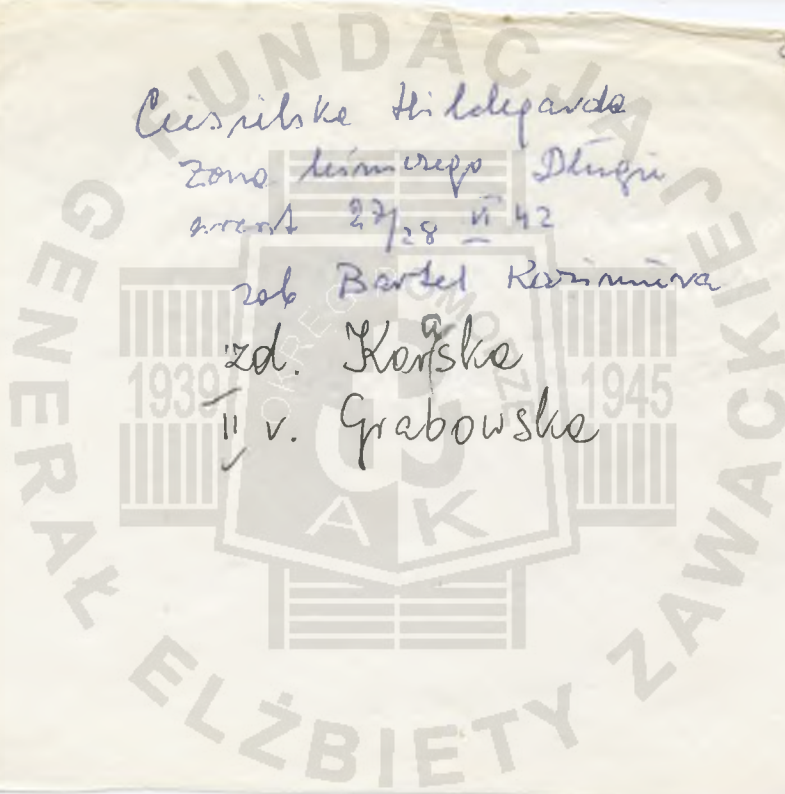 Ciesielska Hildegarda
żona leśniczego Długie
areszt 27/28 VI 42
zob Bartel Kazimiera
zd. Kański
a
II v. Grabowska
FUNDACJA
GENERAŁ ELŻBIETY ZAWACKIEJ
OKRĘG POMORZE
1939 1945
AK